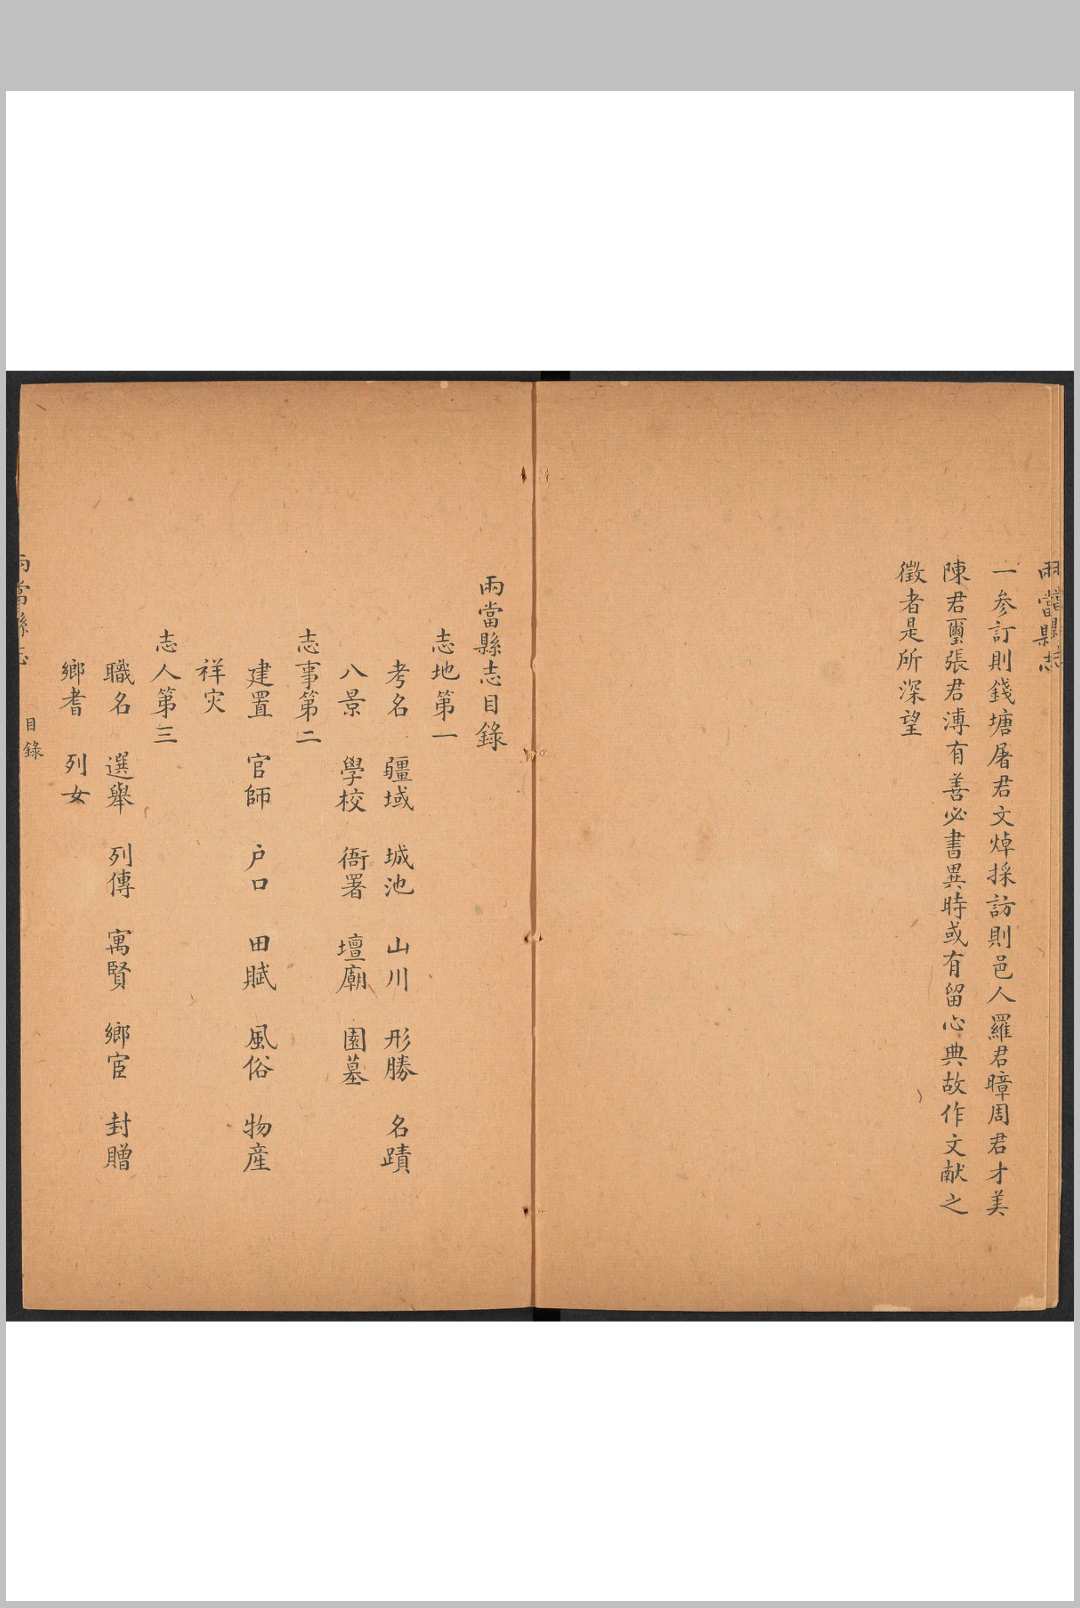 兩當縣志
一參訂則錢塘屠君文焯採訪則邑人羅君暲周君才美
陳君璽張君溥有善必書異時或有留心典故作文献之
徵者是所深望
兩當縣志目錄
志地第一
考名 疆域 城池 山川 形勝 名蹟
八景 學校 衙署 壇廟 園墓
志事第二
建置 官師 户口 田賦 風俗 物產
祥灾
志人第三
職名 選舉 列傳 寓賢 鄉宦 封贈
鄉耆 列女
兩當縣志 目錄